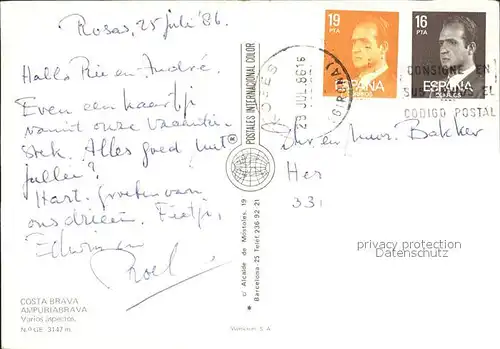 Rosas, 25 juli '86.
Hallo Rie en André.
Even een kaartje
vanuit onze vacantie
stek. Alles goed met
jullie?
Hart. groeten van
ons drieën. Fietje,
Edwin en
Roel
COSTA BRAVA
AMPURIABRAVA
Varios aspectos.
N.º GE. 3147 m.
POSTALES INTERNACIONAL COLOR
c/ Alcalde de Móstoles, 19
Barcelona-25 Teléf. 236 92 21
19
PTA
ESPAÑA
CORREOS
16
PTA
ESPAÑA
CORREOS
28 JUL. 86 16
(GIRONA)
CONSIGNE EN
SUS EL
CODIGO POSTAL
en mevr. Bakker
Her
331
privacy protection
DaMaNeos.com